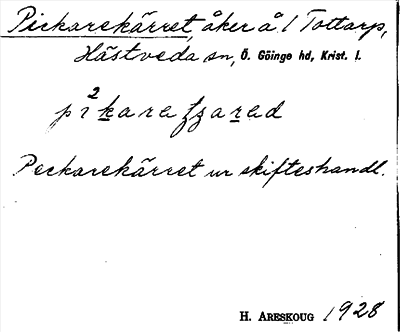 Pickarekärret, åker å 1 Tottarp,
Hästveda sn, Ö. Göinge hd, Krist. l.
Peckarekärret ur skifteshandl.
H. ARESKOUG 1928